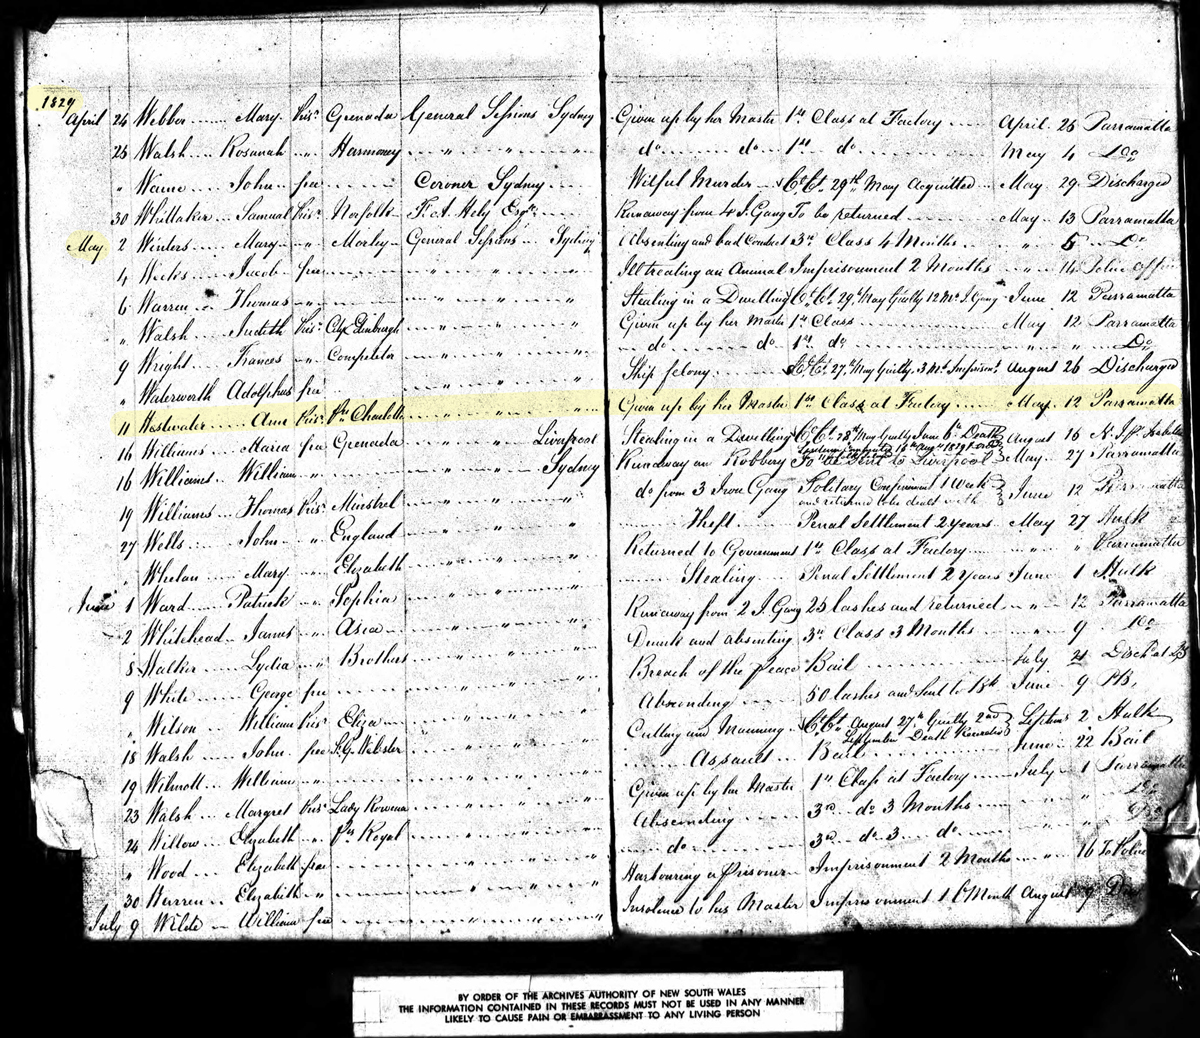 1829
April 24 Webber ...... Mary Pris.r Grenada General Sessions Sydney Given up by her Master 1st Class at Factory ..... April 26 Parramatta
25 Walsh .... Rosanah " Harmoney " " " do ..... do ... 1st do ..... May 4 Do
" Wame .... John free ...... Coroner Sydney ..... Wilful Murder C.Ct. 29th May Acquitted May 29 Discharged
30 Whittaker Samuel Pris.r Norfolk F. A. Hely Esq.re Runaway from 4 I. Gang To be returned May 13 Parramatta
May 2 Winters .... Mary " Morley General Sessions Sydney Absenting and bad Conduct 3rd Class 4 Months " 5 Do
4 Weeks .... Jacob free ...... " " " Ill treating an Animal Imprisonment 2 Months " 14 Police Office
6 Warren .... Thomas " ...... " " " Stealing in a Dwelling C.Ct. 29th May Guilty 12 M. I. Gang June 12 Parramatta
" Walsh .... Judith Pris.r City Edinburgh " " " Given up by her Master 1st Class ..... May 12 Parramatta
9 Wright .... Frances " Competitor " " " do ..... do 1st do ..... " " Do
" Waterworth Adolphus free ...... " " " Ship felony C.Ct. 27th May Guilty 3 M. Imprisont August 26 Discharged
11 Westwater .... Ann Pris.r Pss Charlotte " " " Given up by her Master 1st Class at Factory .... May 12 Parramatta
16 Williams .... Maria free Grenada " " Liverpool Stealing in a Dwelling C.Ct. 28th May Guilty June 6th Death August 15
16 Williams William ...... " " Sydney Runaway and Robbery To be Sent to Liverpool May 27 Parramatta
19 Williams .... Thomas Pris.r Minstrel " " " do from 3 Iron Gang Solitary Confinement 1 Week and returned to be dealt with June 12 Parramatta
27 Wells .... John " England " " " Theft. Penal Settlement 2 years May 27 Hulk
" Whelan .... Mary " Elizabeth " " " Returned to Government 1st Class at Factory .... " " Parramatta
June 1 Ward .... Patrick " Sophia " " " Stealing Penal Settlement 2 Years June 1 Hulk
2 Whitehead James " Asia " " " Runaway from 2 I. Gang 25 lashes and returned " 12 Parramatta
8 Walker .... Lydia " Brothers " " " Drunk and absenting 3rd Class 3 Months " 9 Do
9 White .... George free ...... " " " Breach of the peace Bail ..... July 21
" Wilson .... William Pris.r Eliza " " " Absconding 50 lashes and Sent to June 9
18 Walsh .... John free G. Webster " " " Cutting and Maiming C.Ct. August 27th Guilty 2nd September Death Recorded Septem.r 2 Hulk
19 Wilmott William " ...... " " " Assault Bail June 22 Bail
23 Walsh Margret Pris.r Lady Rowena " " " Given up by her Master 1st Class at Factory July 1 Parramatta
24 Wittow Elizabeth " Pss Royal " " " Absconding 3rd do 3 Months " " Do
" Wood Elizabeth free ...... " " " do 3rd do 3 do " " Do
30 Warren Elizabeth " ...... " " " Harbouring a Prisoner Imprisonment 2 Months " 16 To Police
July 9 Wilde William free ...... " " " Insolence to his Master Imprisonment 1 Month August 9
BY ORDER OF THE ARCHIVES AUTHORITY OF NEW SOUTH WALES
THE INFORMATION CONTAINED IN THESE RECORDS MUST NOT BE USED IN ANY MANNER
LIKELY TO CAUSE PAIN OR EMBARRASSMENT TO ANY LIVING PERSON